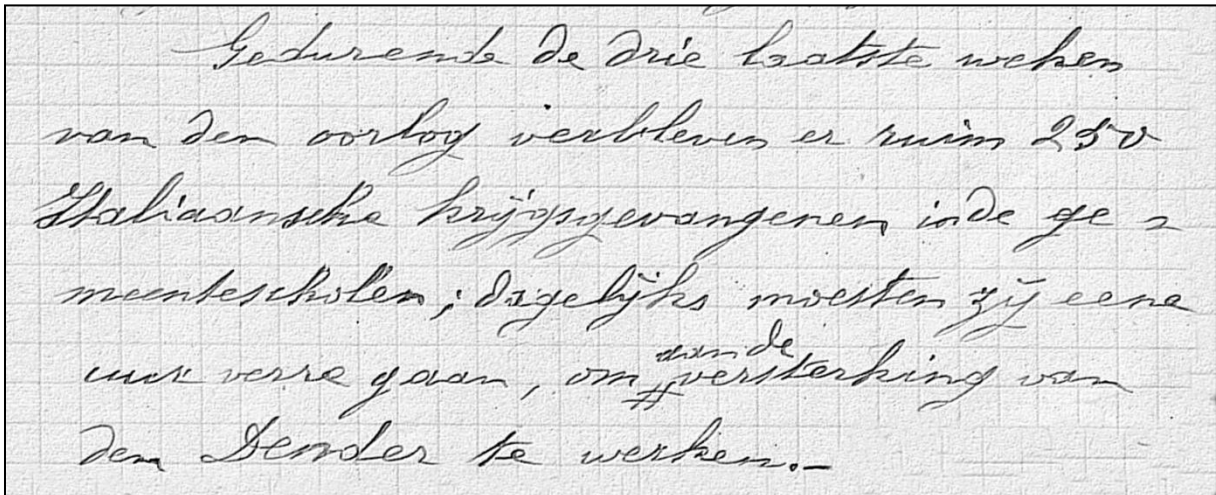 Gedurende de drie laatste weken
van den oorlog verbleven er ruim 250
Italiaansche krijgsgevangenen in de ge=
meentescholen; dagelijks moesten zij eene
uur verre gaan, om aan de versterking van
den Dender te werken.-